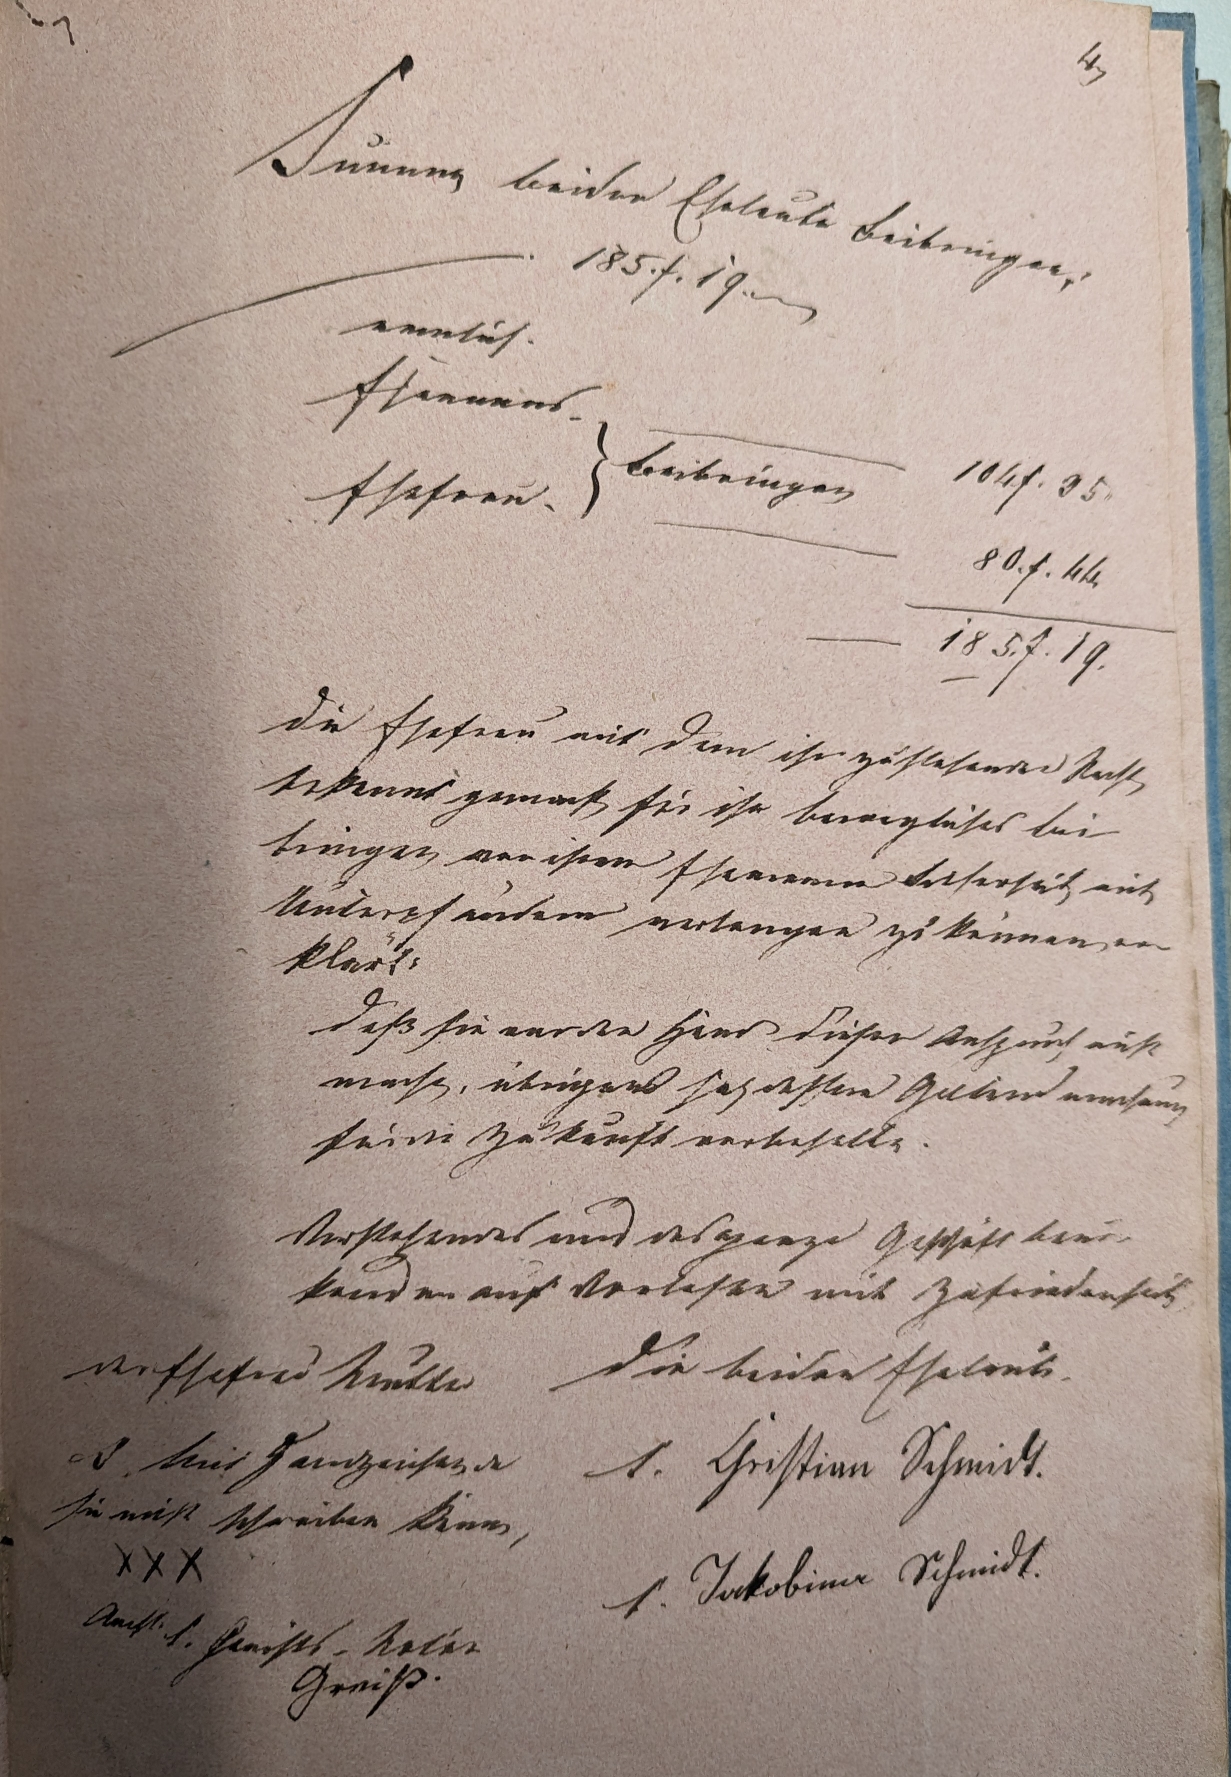 4,
Summa beider Eheleute Beibringen:
185.f. 19.
nemlich.
Ehemanns-
Ehefrau-
} Beibringen
104f. 35.
80.f. 44.
185.f. 19.
Die Ehefrau mit dem ihr zustehenden Recht,
bekannt gemacht, für ihr bewegliches Bei
bringen von ihrem Ehemann Sicherheit mit
Unterpfändern verlangen zu können, er
klärt:
daß sie von der Hand diesen Anspruch nicht
mache, übrigens sich dessen Geltendmachung
für die Zukunft vorbehalte.
Vorstehendes und das ganze Geschäft beur
kunden auf Vorlesen mit Zufriedenheit,
der Ehefrau Mutter
Die beiden Eheleute.
Handzeichen, da
sie nicht schreiben kann,
XXX
t. Christian Schmidt.
t. Jakobine Schmidt.
t. Gerichts-Notar
Greiß.